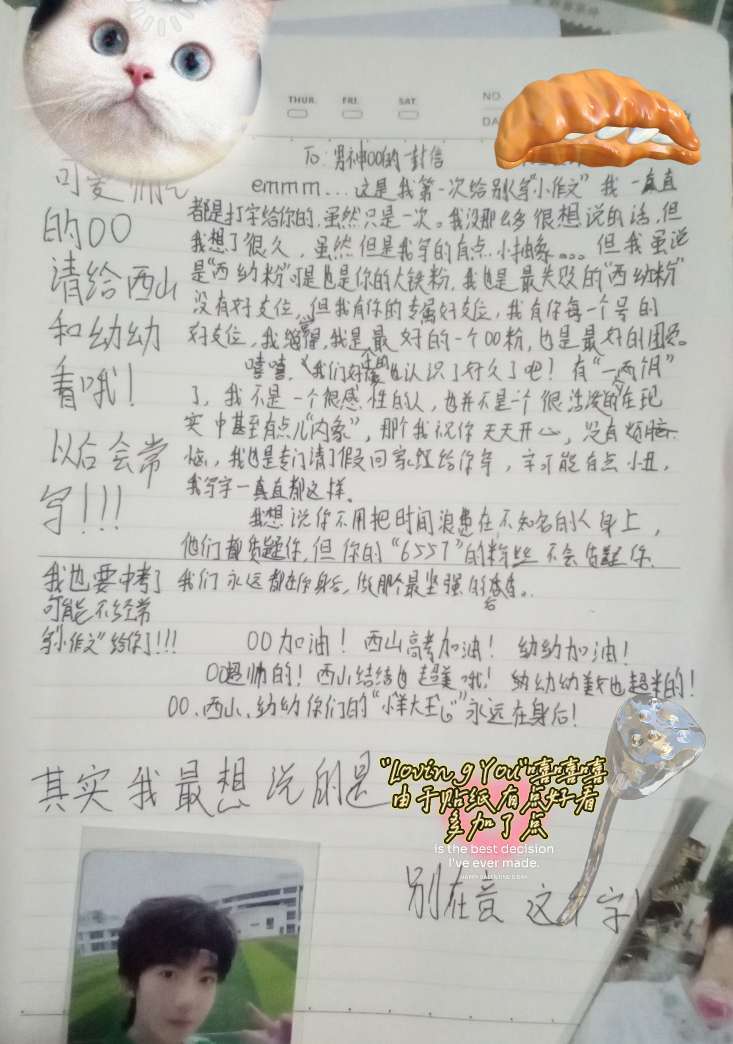 THUR. FRI. SAT.
NO.
DA
To: 男神OO的一封信
emmm... 这是我第一次给别人写"小作文" 我一直直
都是打字给你的,虽然只是一次。我没那么多很想说的话,但
我想了很久,虽然但是我写的有点小抽象。。。但我虽说
是"西幼粉"可是也是你的大铁粉,我也是最失败的"西幼粉"
没有好友位,但我有你的专属好友位,我有你每一个号的
好友位,我觉得,我是最好的一个OO粉,也是最好的团宠。
嘻嘻,我们好像也认识了好久了吧!有"一两个月"
了,我不是一个很感性的人,也并不是一个很活泼的在现
实中甚至有点儿"内象",那个我祝你天天开心,没有烦
恼,我也是专门请了假回家给你写,字可能有点小丑,
我写字一直直都这样。
我想说你不用把时间浪费在不知名的人身上,
他们都质疑你,但你的"6557"的粉丝不会质疑你
我们永远都在你身后,做那个最坚强的后
可爱帅气
的OO
请给西山
和幼幼
看哦!
以后会常
写!!!
我也要中考了
可能不经常
写"小作文"给你了!!!
OO加油! 西山高考加油! 幼幼加油!
OO超帅的! 西山结结也超美哦! 幼幼幼也超的!
OO、西山、幼幼你们的"小羊大王"永远在身后!
其实我最想说的是
"Loving You"嘻嘻嘻
由于贴纸有点好看
多加了点
is the best decision
I've ever made.
别在意这个字!